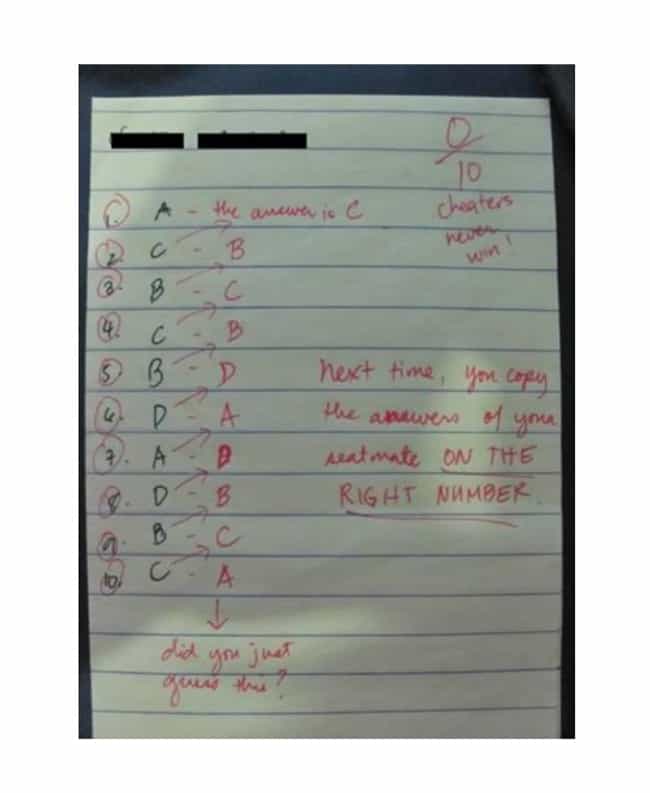 0/10
cheaters
never
win!
1. A - the answer is C
2. C - B
3. B - C
4. C - B
5. B - D
6. D - A
7. A - D
8. D - B
9. B - C
10. C - A
Next time, you copy
the answers of your
seatmate ON THE
RIGHT NUMBER.
did you just
guess this?